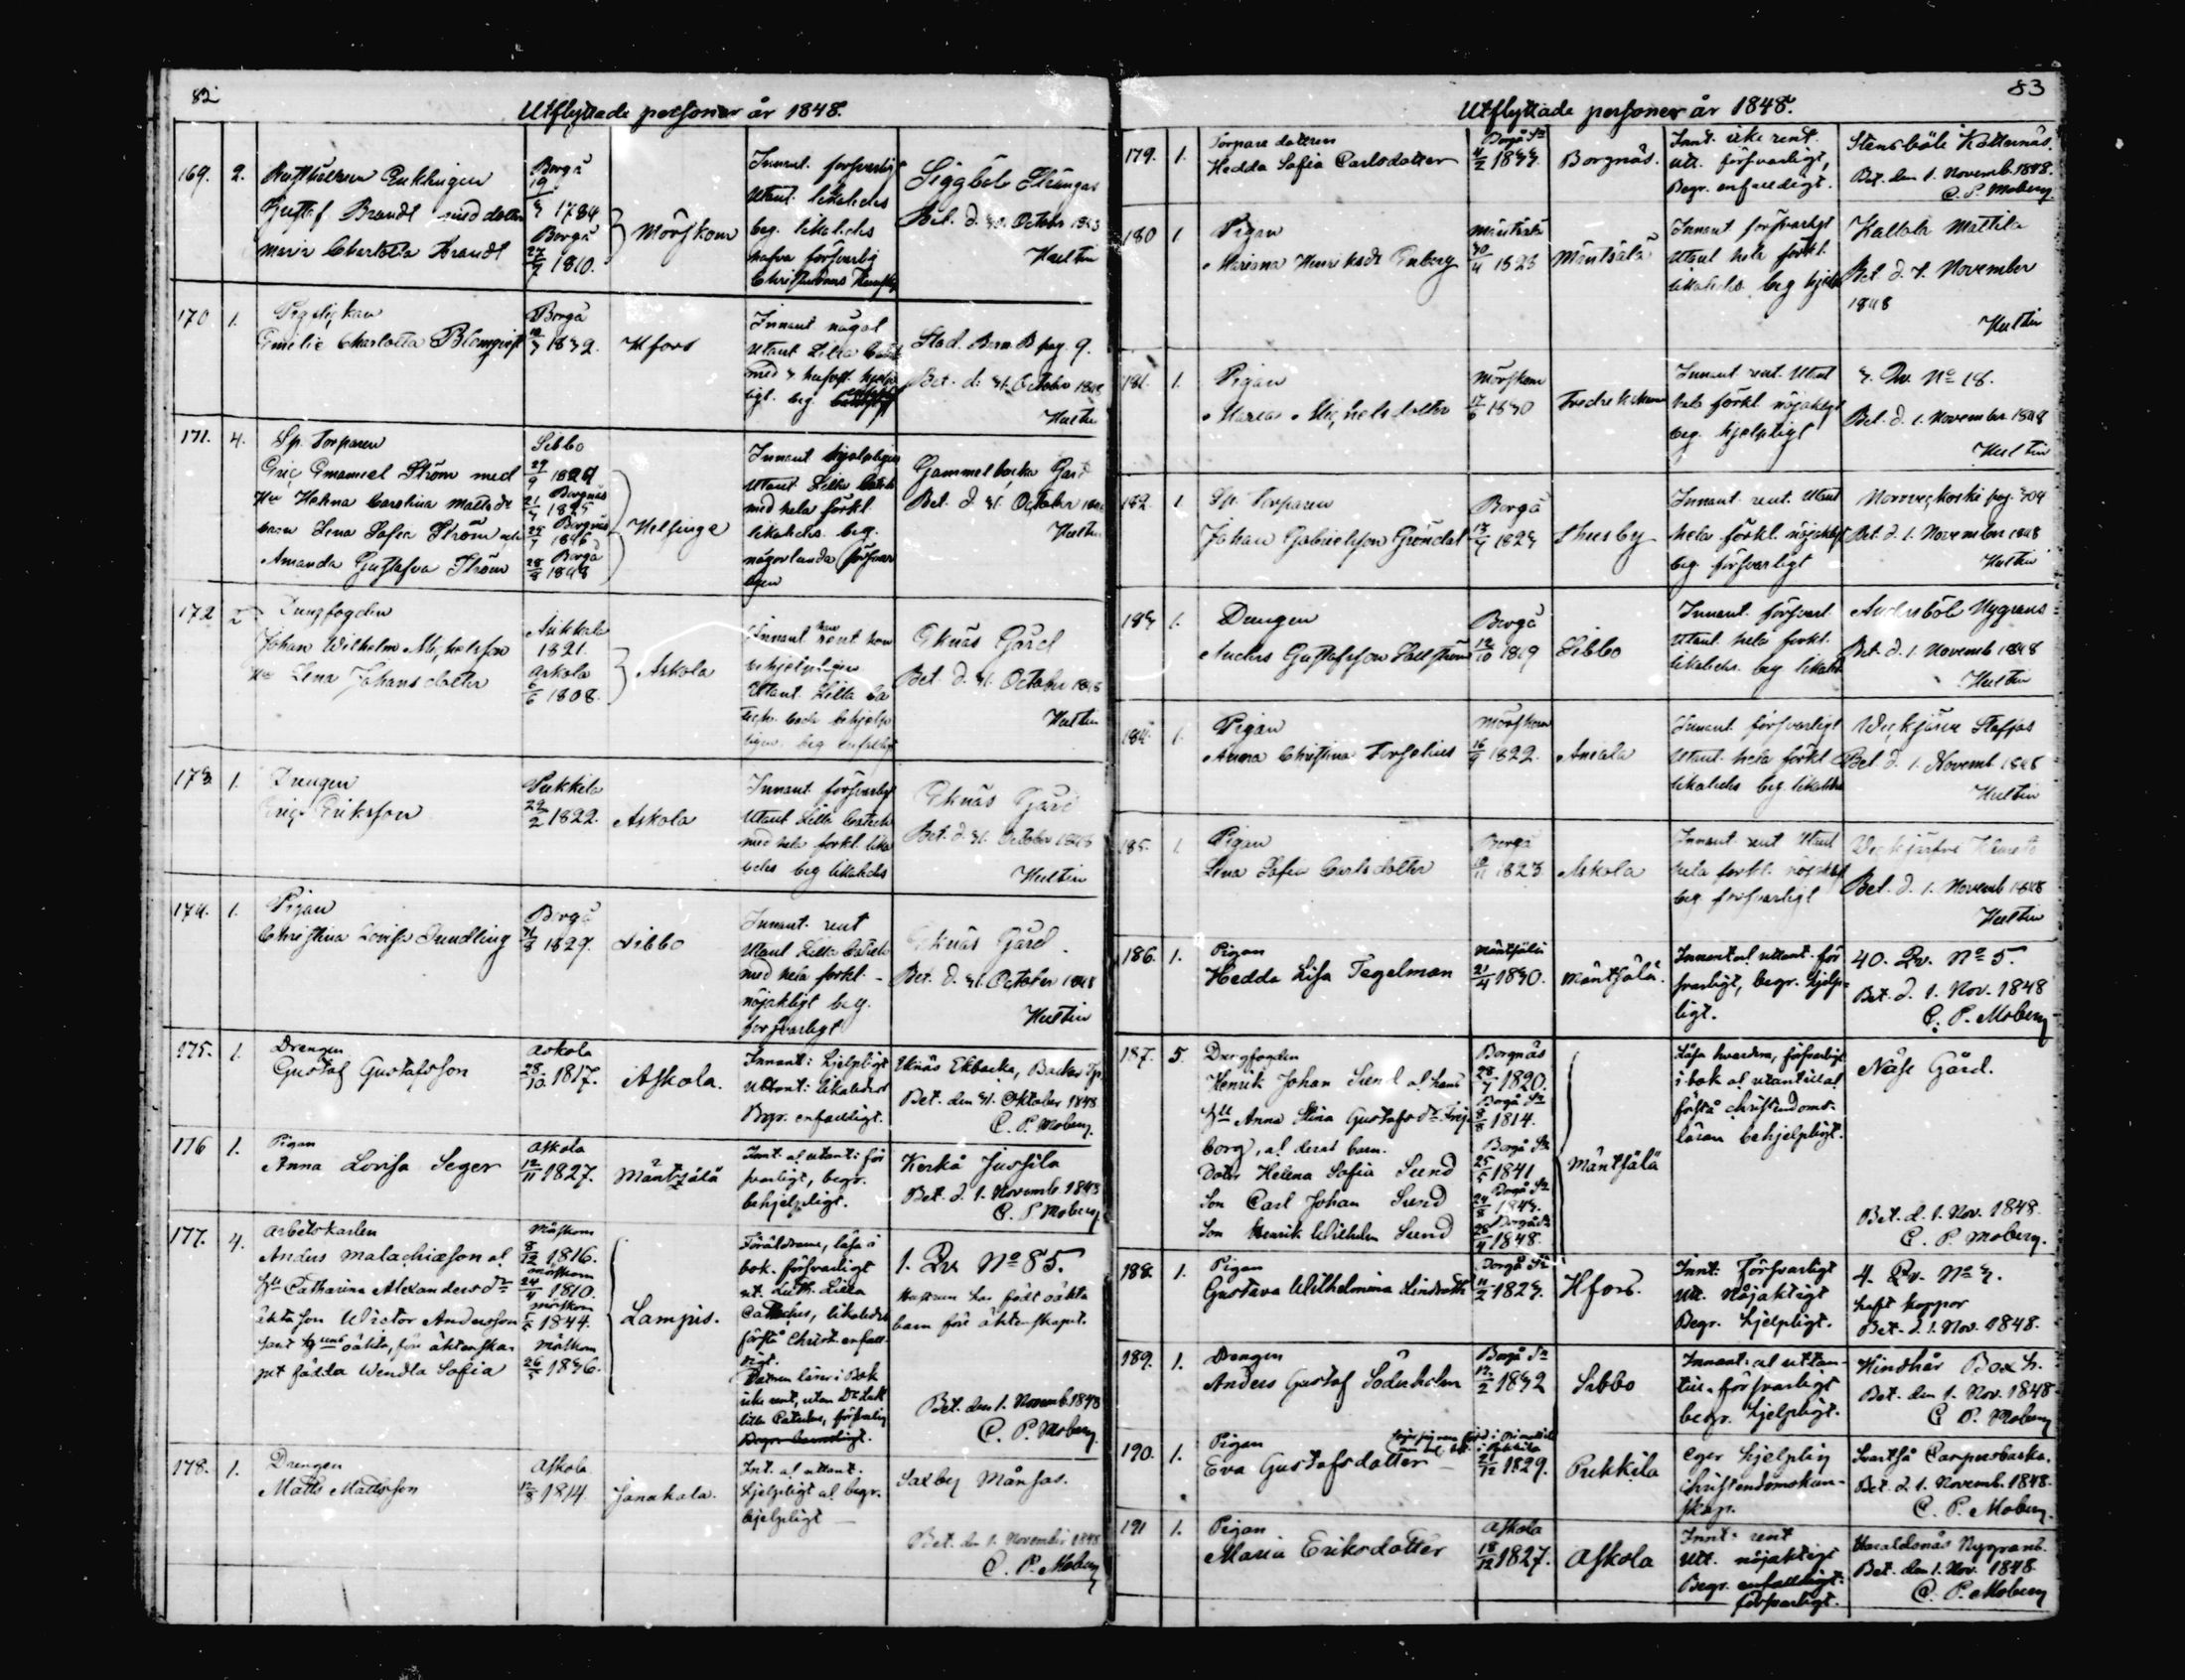 82
Utflyttade personer år 1848.
169. 2.
Gustaf Brandt med dotter
Maria Charlotta Brandt
Borgå
19/3 1784
Borgå
27/7 1810.
Mörskom
Innant. försvarlig
Utant. likaledes
beg. likaledes
hafva försvarlig
Christendoms
Siggböle Strängas
Bet. d. 31. October 1848
Hultin
170. 1.
Emilie Charlotta Blomqvist
Borgå
1832.
Hfors
Innant. något
Utant. Lilla
beg.
Stad. Barn B. pag. 9.
Bet. d. 31. October 1848
Hultin
171. 4.
Sp. Torparen
Eric Emanuel Ström med
Hu Helena Carolina Mattsdr
barn Lena Sofia Ström och
Amanda Gustafva Ström
Sibbo
29/9
Borgnäs
21/3 1825
Borgnäs
1846
Borgå
28/8 1848
Helsinge
Innant. hjelpligen
Utant. Lilla
med hela förkl.
likaledes. beg.
någorlunda försvar
ligen
Gammelbacka Gård
Bet. d. 31. October 1848
Hultin
172 2
Dungfogden
Johan Wilhelm Michelsson
Hu Lena Johansdotter
1821.
Askola
6/6 1808.
Askola
Innant. rent hon
behjelpligen
Utant. Lilla Ca
beg. enfaldigt
Eknäs Gård
Bet. d. 31. October 1848
Hultin
173. 1.
Drengen
Eric Eriksson
Pukkila
29/2 1822.
Askola
Innant försvarligt
Utant Lilla
med hela förkl. lika
ledes beg likaledes
Eknäs Gård
Bet. d. 31. October 1848
Hultin
174. 1.
Pigan
Christina Lovisa Sundling
Borgå
1829.
Sibbo
Innant. rent
Utant Lilla
med hela förkl.
nöjaktigt beg.
försvarligt
Eknäs Gård
Bet. d. 31. October 1848
Hultin
175. 1.
Drengen
Gustaf Gustafsson
Askola
28/10 1817.
Askola.
Innant: hjelpligt
Utant: likaledes
Begr. enfaldigt.
Eknäs Ekbacka,
Bet. den 31. Oktober 1848
C. P. Moberg.
176 1.
Pigan
Anna Lovisa Seger
Askola
12/11 1827.
Mäntzälä
Innt. al utant: för
svarligt, begr.
behjelpligt.
Kerkå Jussila
Bet. d. 1. Novemb. 1848
C. P. Moberg
177. 4.
Arbetskarlen
Anders Malachiæson al
Hu Catharina Alexandersdr
äkta son Victor Andersson
oäkta, före äktenska-
pet födda Wendla Sofia
Mörskom
8/12 1816.
Mörskom
24/4 1810.
Mörskom
1844.
Mörskom
26/5 1836.
Lampis.
Föräldrarne, läsa i
bok. försvarligt
ut. Luth. Lilla
Cateches, likaledes
förstå Christ. enfall-
digt.
Dottren läser i Bok
icke rent, utan
lilla Cateches, försvarlig
1. Qv. No 85.
Hustrun har födt oäkta
barn före äktenskapet.
Bet. den 1. Novemb. 1848
C. P. Moberg.
178. 1.
Drengen
Matts Mattsson
Askola
12/8 1814.
Janakala.
Int. al utant.
hjelpligt al begr.
hjelpligt
Saxby Månsas.
Bet. den 1. November 1848
C. P. Moberg
83
Utflyttade personer år 1848.
179. 1.
Torpare dotteren
Hedda Sofia Carlsdotter
Borgå Sn
4/2 1833.
Borgnäs.
Innt. icke rent.
Utt. försvarligt,
Begr. enfaldigt.
Stensböle Kallernäs.
Bet. den 1. Novemb. 1848.
C. P. Moberg.
180 1
Pigan
Mariana Henriksdr Enberg
Mäntsälä
30/4 1828
Mäntsälä
Innant försvarligt
Utant hela förkl.
likaledes beg hjelpl
Kallola Mattila
Bet. d. 1. November
1848
Hultin
181. 1.
Pigan
Maria Michelsdotter
Mörskom
17/6 1830
Innant. rent. Utant
hela förkl. nöjaktigt
beg. hjelpligt
3. Qv. No 18.
Bet. d. 1. November 1848
Hultin
182. 1
Sp. Torparen
Johan Gabrielsson Gröndal
Borgå
1823
Thusby
Innant. rent. Utant
hela förkl. nöjaktigt
beg. försvarligt
Norrveckoski pag. 304
Bet. d. 1. November 1848
Hultin
183. 1.
Drengen
Anders Gustafsson Hallström
Borgå
12/10 1819
Sibbo
Innant. försvarl
Utant. hela förkl.
likaledes. beg likaled
Andersböle Nygrans
Bet. d. 1. Novemb 1848
Hultin
184. 1.
Pigan
Anna Christina Forselius
Mörskom
16/9 1822.
Aniala
Innant. försvarligt
Utant. hela förkl
likaledes beg. likaledes
Veckjärvi Staffas
Bet. d. 1. Novemb 1848
Hultin
185. 1.
Pigan
Lena Sofia Carlsdotter
Borgå
1823
Askola
Innant. rent Utant
hela förkl. nöjaktigt
beg försvarligt
Bet. d. 1. Novemb 1848
Hultin
186. 1.
Pigan
Hedda Lisa Tegelman
Mäntsälä
21/4 1830.
Mäntsälä.
Innant al utant. för
svarligt, begr. hjelp-
ligt.
40. Qv. No 5.
Bet. d. 1. Nov. 1848
C. P. Moberg
187. 5.
Dungfogden
Henrik Johan Sund al hans
Hu Anna Stina Gustafsdr Frej
borg, al deras barn.
Dotr Helena Sofia Sund
Son Carl Johan Sund
Son Henrik Wilhelm Sund
Borgnäs
28/7 1820.
Borgå Sn
8/8 1814.
Borgå Sn
25/5 1841
Borgå Sn
24/8 1843.
Borgå Sn
28/4 1848.
Mäntsälä
Läsa hvardera, försvarligt
i bok al utantill al
förstå christendoms-
läran behjelpligt.
Näse Gård.
Bet. d. 1. Nov. 1848.
C. P. Moberg.
188. 1.
Pigan
Gustava Wilhelmina Lindroth
Borgå Sn
11/2 1823.
Hfors.
Innt: Försvarligt
Utt. Nöjaktigt
Begr. hjelpligt.
4. Qv. No 3.
haft koppor
Bet. d. 1. Nov. 1848.
189. 1.
Drengen
Anders Gustaf Söderholm
Borgå Sn
12/2 1832
Sibbo
Innant. al uttan-
till försvarligt
begr. hjelpligt.
Hindhår Box h.
Bet. den 1. Nov. 1848
C. P. Moberg
190. 1.
Pigan
Eva Gustafsdotter
i Pukkila
21/12 1829.
Pukkila
Eger hjelplig
Christendomskun-
skap.
Svartså Carpusbacka.
Bet. d. 1. Novemb. 1848.
C. P. Moberg.
191 1.
Pigan
Maria Eriksdotter
Askola
18/12 1827.
Askola
Innt. rent
Utt. nöjaktigt
Begr. enfalldigt.
försvarligt.
Haraldsnäs Nygranb.
Bet. den 1. Nov. 1848
C. P. Moberg